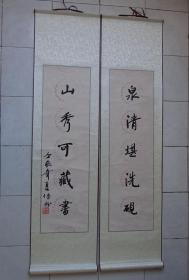 泉清堪洗硯
山秀可藏書